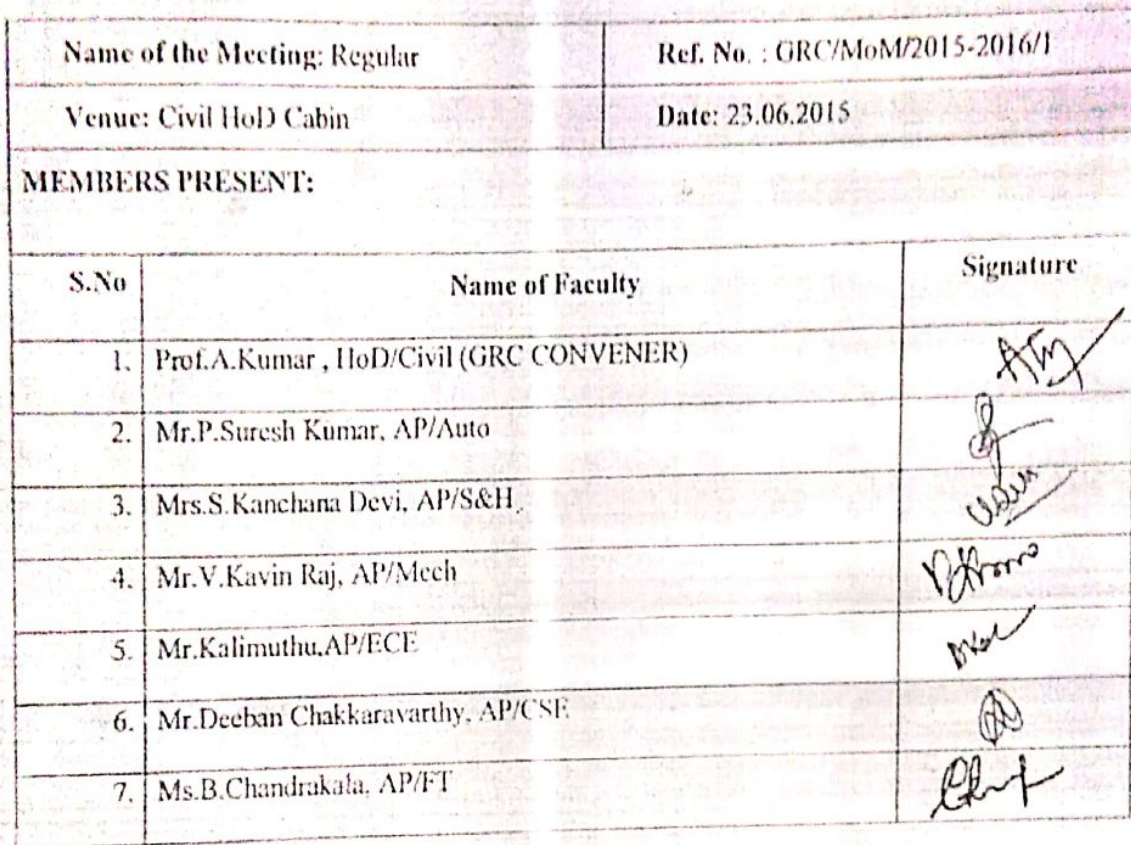 Name of the Meeting: Regular Ref. No. : GRC/MoM/2015-2016/1
Venue: Civil HoD Cabin Date: 23.06.2015
MEMBERS PRESENT:
S.No Name of Faculty Signature
1. Prof.A.Kumar , HoD/Civil (GRC CONVENER)
2. Mr.P.Suresh Kumar, AP/Auto
3. Mrs.S.Kanchana Devi, AP/S&H
4. Mr.V.Kavin Raj, AP/Mech
5. Mr.Kalimuthu,AP/ECE
6. Mr.Deeban Chakkaravarthy, AP/CSE
7. Ms.B.Chandrakala, AP/FT